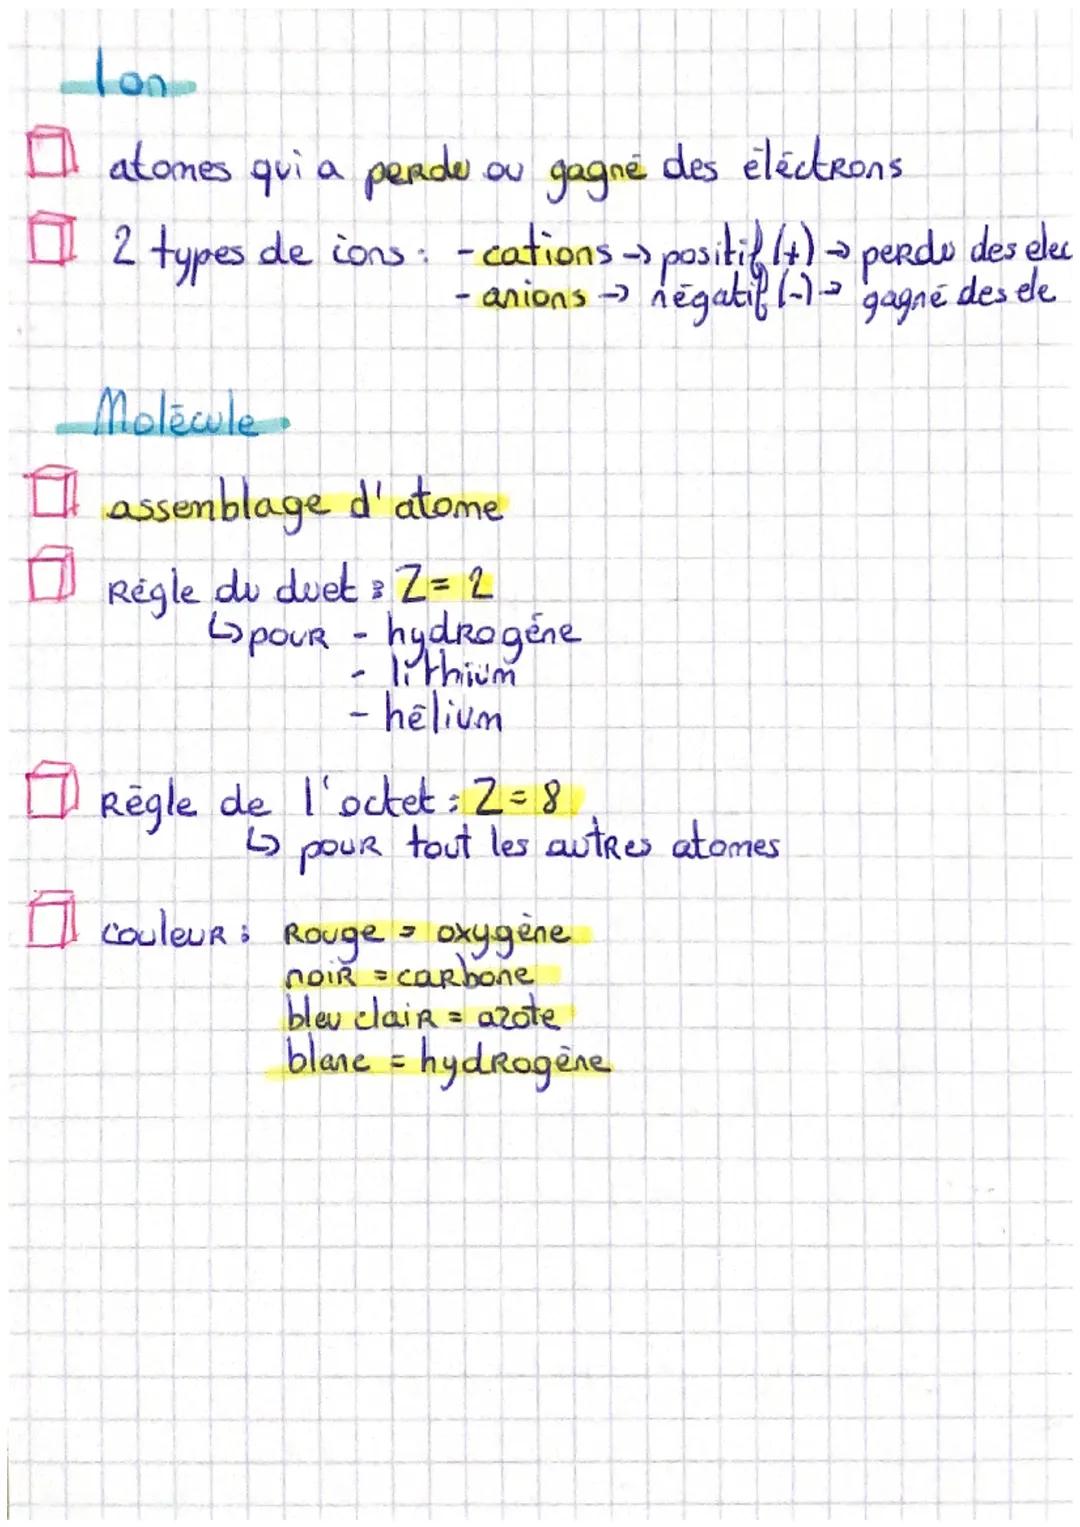 Ion
atomes qui a perdu ou gagné des éléctrons
2 types de ions : - cations → positif (+) → perdu des elec
- anions → négatif (-) → gagné des ele
Molécule
assemblage d'atome
Régle du duet : Z = 2
↳ pour - hydrogéne
- lithium
- hélium
Régle de l'octet : Z = 8
↳ pour tout les autres atomes
Couleur : Rouge = oxygène
noir = carbone
bleu clair = azote
blanc = hydrogène